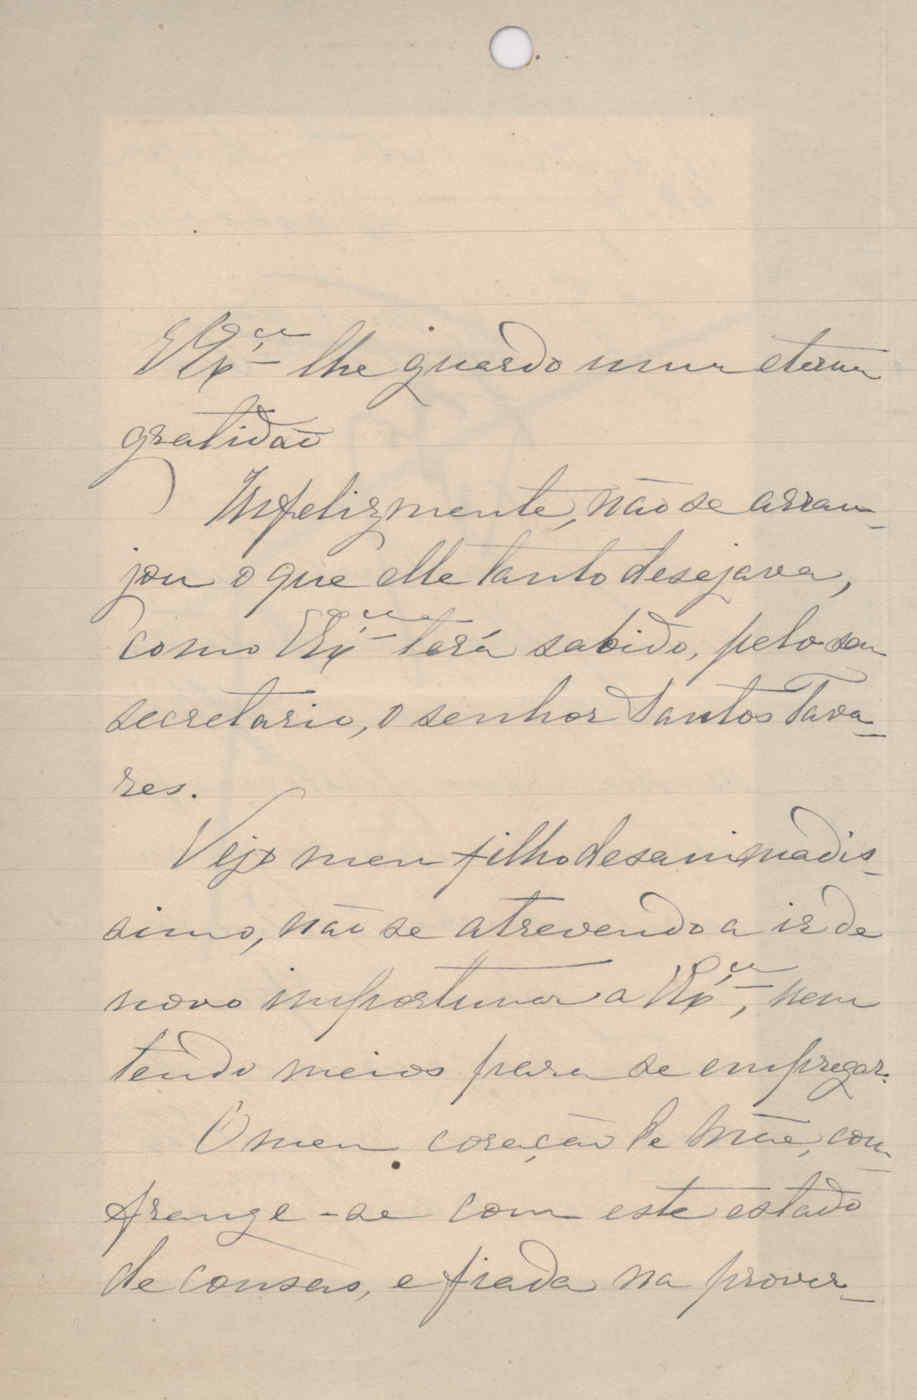 V Ex.cia lhe guardo uma eterna
gratidão
Infelizmente, não se arran-
jou o que elle tanto desejava,
como V Ex.cia terá sabido, pelo seu
secretario, o senhor Santos Tava-
res.
Vejo meu filho desanimadis-
simo, não se atrevendo a ir de
novo importunar a V Ex.cia, nem
tendo meios para se empregar.
O meu coração de Mãe, con-
frange-se com este estado
de cousas, e fiada na prover-